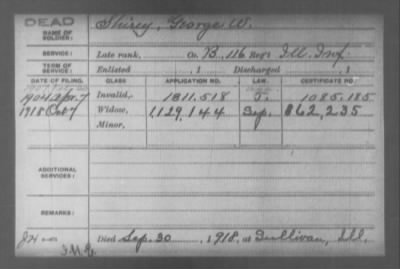 DEAD
NAME OF SOLDIER: Shirey, George W.
SERVICE: Late rank, Co. B, 116 Reg't Ill. Inf.
TERM OF SERVICE: Enlisted , 1 Discharged , 1
DATE OF FILING. CLASS APPLICATION NO. LAW. CERTIFICATE NO.
1904 Apr. 7 Invalid, 1311.518 J. 1085.185
1918 Oct 7 Widow, 1,129,144 Sep. 862,235
Minor,
ADDITIONAL SERVICES:
REMARKS:
Died Sep. 30, 1918, at Sullivan, Ill.